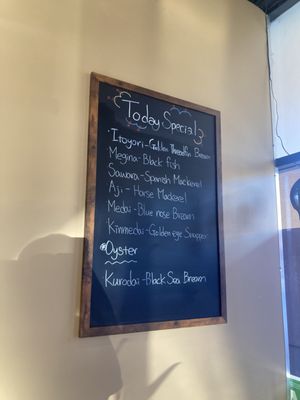 Today Special
Itoyori - Golden Threadfin Bream
Megina - Black fish
Sawara - Spanish Mackerel
Aji - Horse Mackerel
Medai - Blue nose Bream
Kinmedai - Golden eye Snapper
Oyster
Kurodai - Black Sea Bream